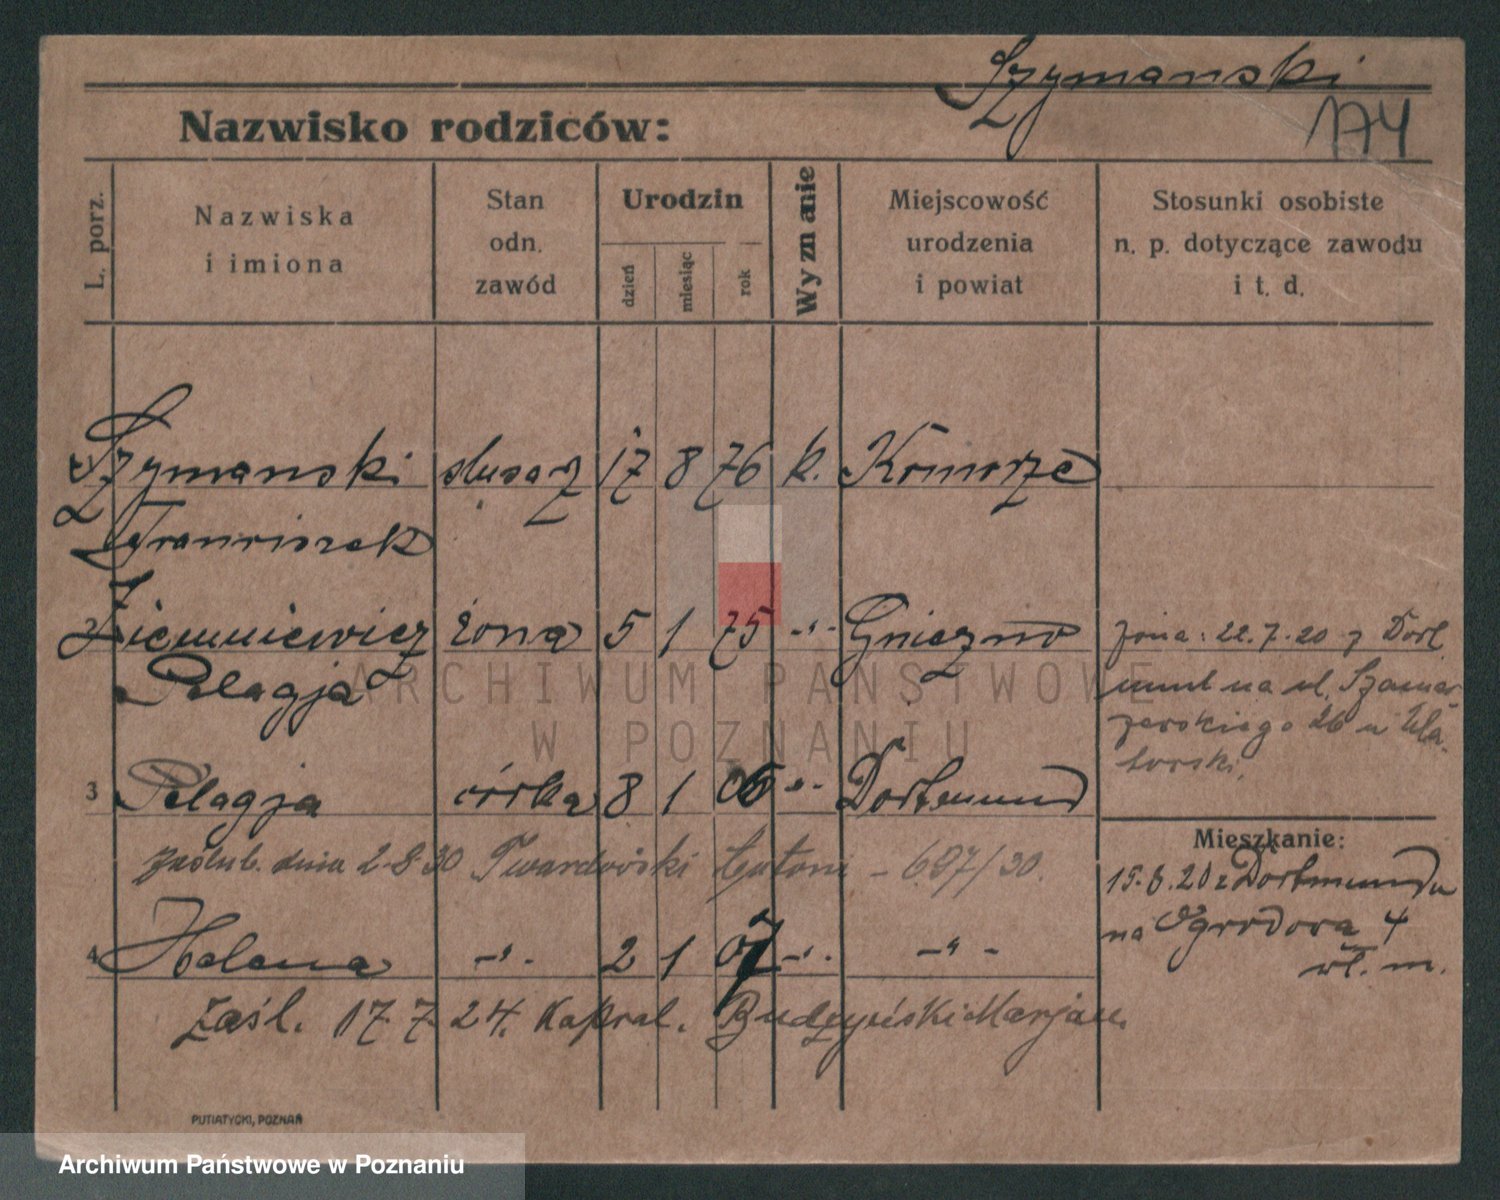 Szymanski
174
Nazwisko rodziców:
L. porz.
Nazwiska
i imiona
Stan
odn.
zawód
Urodzin
dzień
miesiąc
rok
Wyznanie
Miejscowość
urodzenia
i powiat
Stosunki osobiste
n. p. dotyczące zawodu
i t. d.
Szymanski ślusarz 17 8 76 k. Komorze
Franciszek
2 Ziemniewicz żona 5 1 75 -"- Gniezno
Pelagja
żona: 22.7.20 z Dort
mund na ul. Szamar
zewskiego 26 u
3 Pelagja córka 8 1 06 -"- Dortmund
zaślub. dnia 2.8.30 Twardowski Antoni - 697/30.
Mieszkanie:
15.8.20 z Dortmundu
na Ogrodowa 4
wł. m.
4 Helena -"- 2 1 07 -"- -"-
Zaśl. 17.7.24. Kapral. Budzyński Marjan.
PUTIATYCKI, POZNAŃ
ARCHIWUM PAŃSTWOWE
W POZNANIU
Archiwum Państwowe w Poznaniu